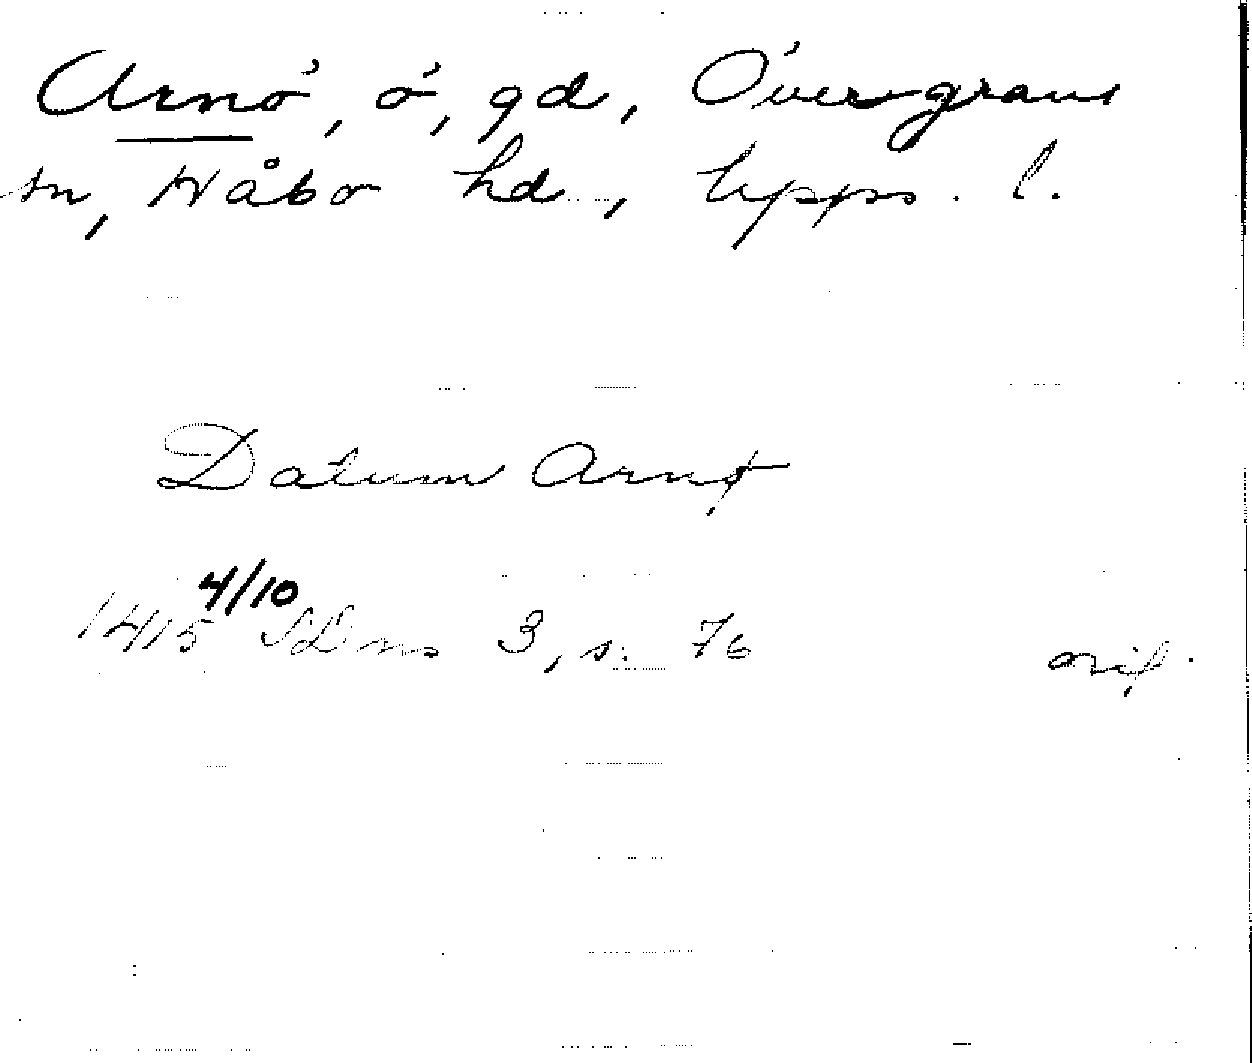 Arnö, ö, gd, Övergrans
sn, Håbo hd., Upps. l.
Datum Arnø
1415 4/10 SDns 3, s. 76 orig.